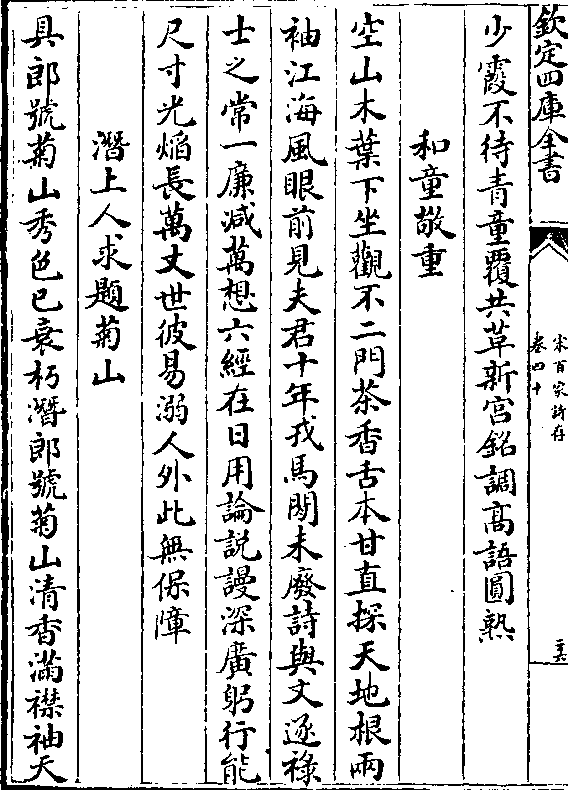 欽定四庫全書
宋百家詩存
卷四十
少霞不待青童覆共草新宮銘調高語圓熟
和童敬重
空山木葉下坐觀不二門茶香舌本甘直探天地根兩
袖江海風眼前見夫君十年戎馬閒未廢詩與文逐祿
士之常一廉减萬想六經在日用論說謾深廣躬行能
尺寸光熖長萬丈世彼易溺人外此無保障
潛上人求題菊山
具郎號菊山秀色已衰朽潛郎號菊山清香滿襟袖天